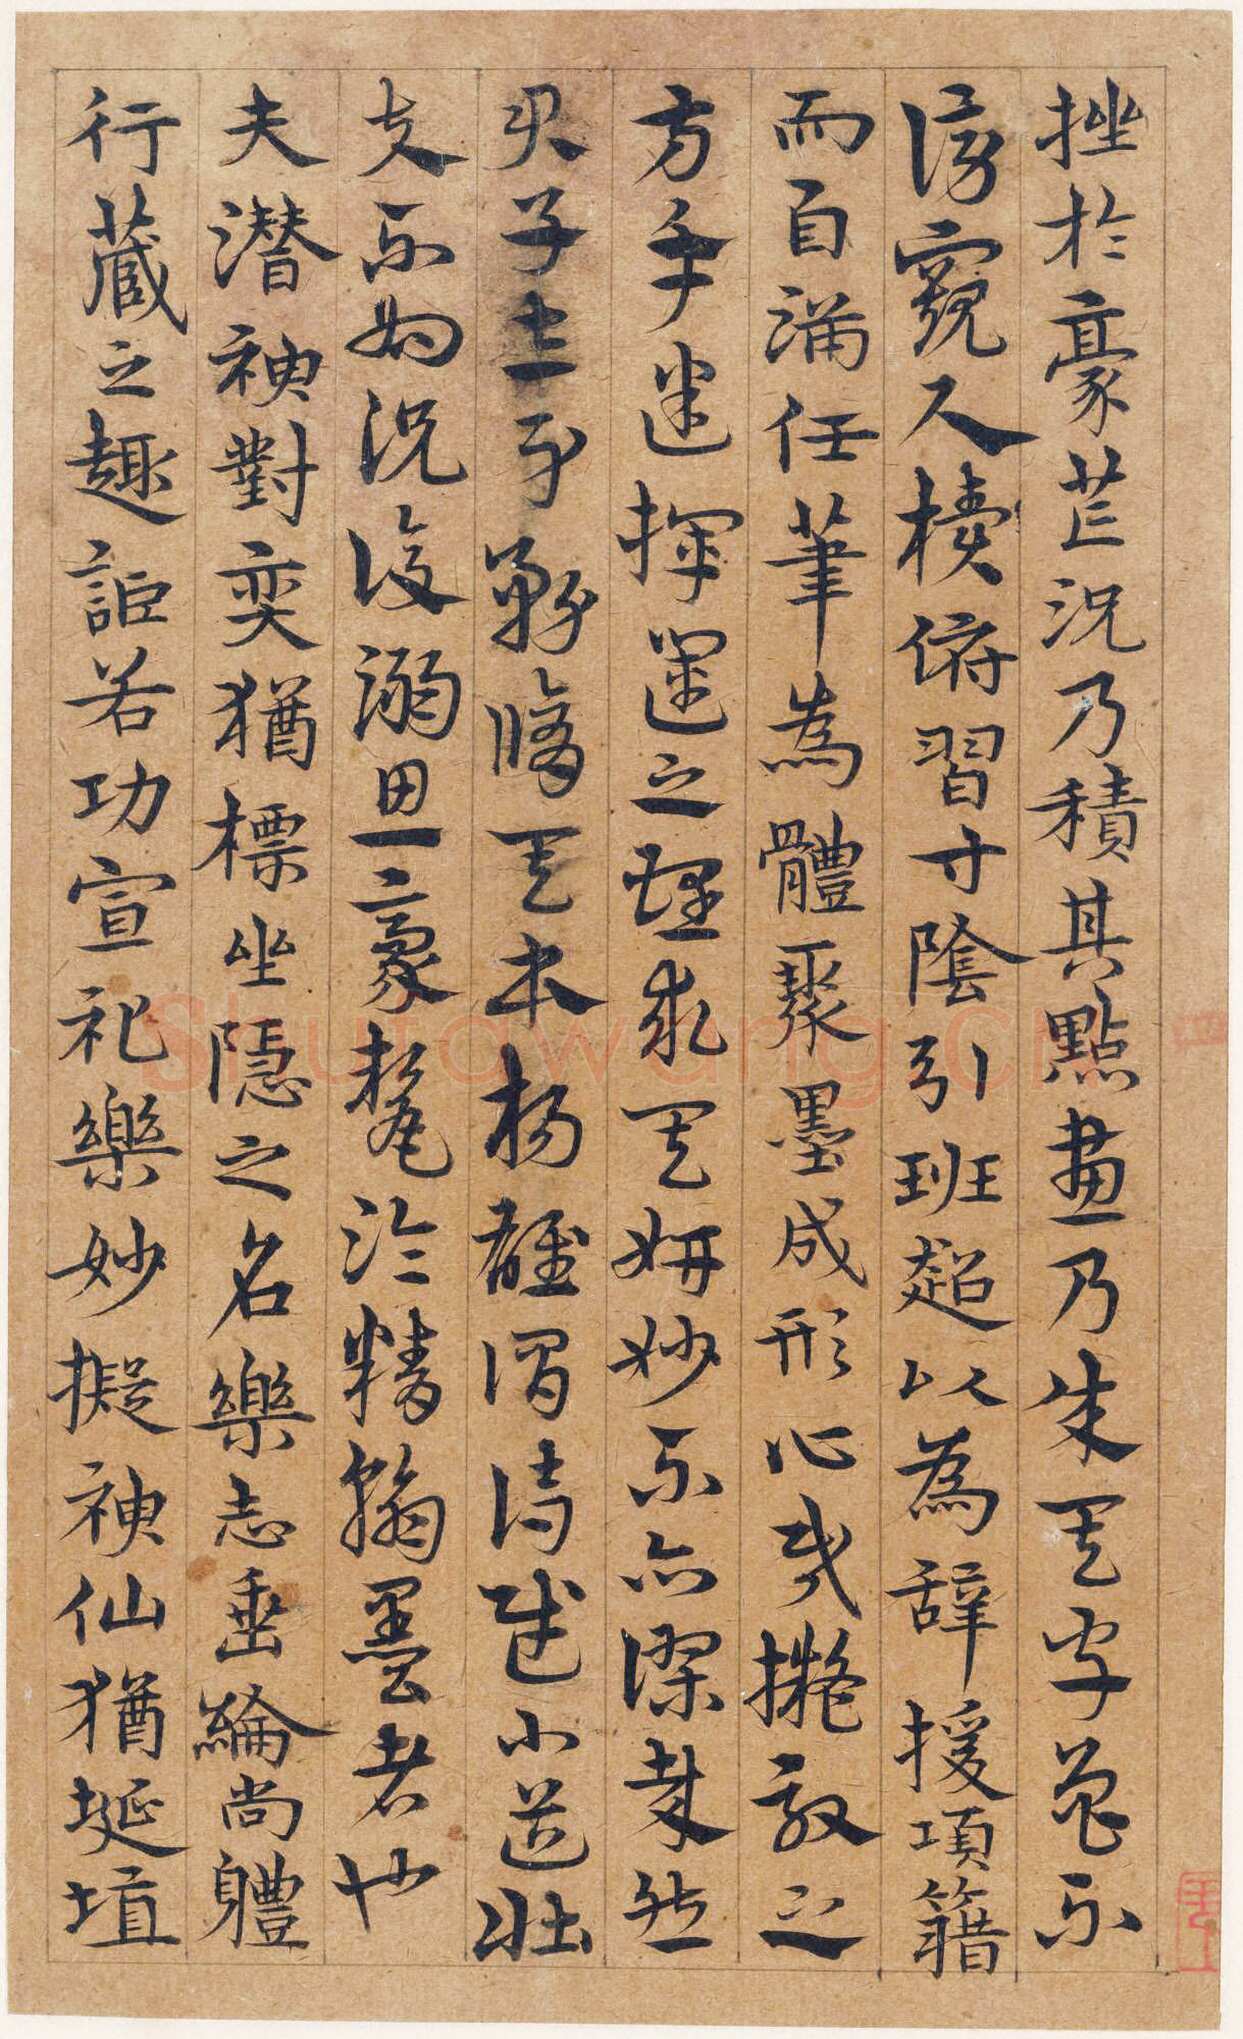 挫於豪芒況乃積其點畫乃成其字曾不
傍窺尺牘俯習寸陰引班超以為辭援項籍
而自滿任筆為體聚墨成形心昏擬效之
方手迷揮運之理求其妍妙不亦謬哉然
君子立身務修其本楊雄謂詩賦小道壯
夫不為況復溺思豪氂淪精翰墨者也
夫潛神對奕猶標坐隱之名樂志垂綸尚體
行藏之趣詎若功宣礼樂妙擬神仙猶埏埴
Shufawang.cn